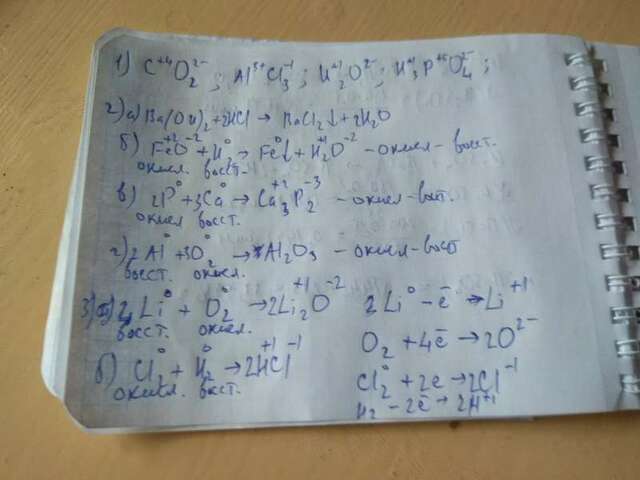 1) C⁺⁴O₂²⁻ ; Al³⁺Cl₃⁻¹ ; H₂⁺¹O²⁻ ; H₃⁺¹P⁺⁵O₄²⁻ ;
2) а) Ba(OH)₂ + 2HCl → BaCl₂↓ + 2H₂O
б) Fe⁺²O⁻² + H⁰ → Fe⁰↓ + H₂⁺¹O⁻² – окисл-восст.
окисл. восст.
в) 2P⁰ + 3Ca⁰ → Ca₃⁺²P₂⁻³ – окисл-вост.
окисл восст.
г) 2Al⁰ + 3O₂⁰ → Al₂O₃ – окисл-вост
восст. окисл.
3) а) 4Li⁰ + O₂⁰ → 2Li₂⁺¹O⁻² 2Li⁰ – e̅ → Li⁺¹
восст. окисл.
O₂ + 4e̅ → 2O²⁻
б) Cl₂⁰ + H₂⁰ → 2H⁺¹Cl⁻¹
окисл. вост.
Cl₂⁰ + 2e → 2Cl⁻¹
H₂ – 2e̅ → 2H⁺¹